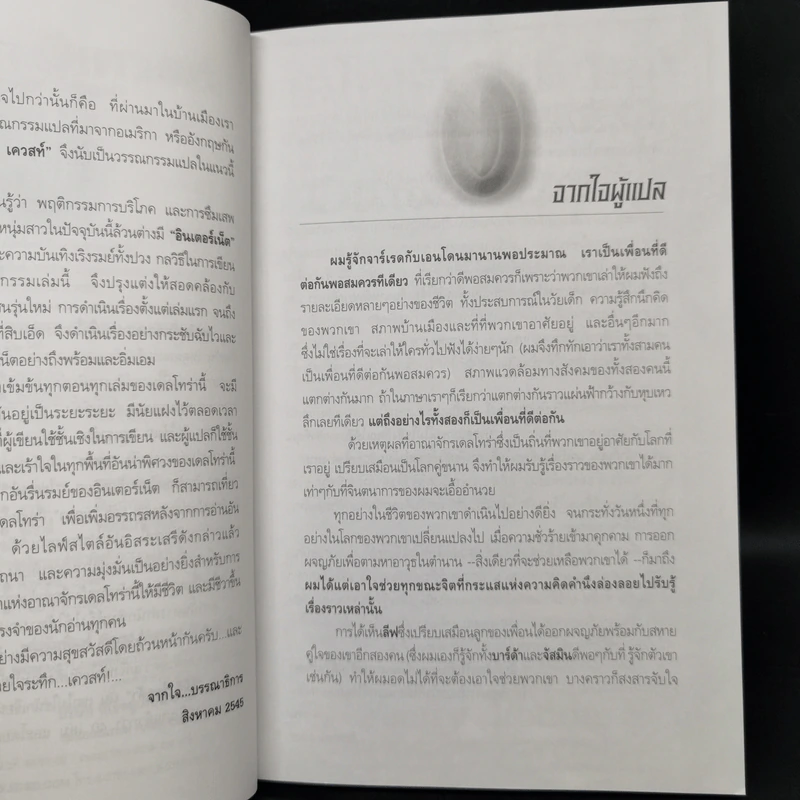 จไปกว่านั้นก็คือ ที่ผ่านมาในบ้านเมืองเรา
รณกรรมแปลที่มาจากอเมริกา หรืออังกฤษกัน
เควสท์” จึงนับเป็นวรรณกรรมแปลในแนวนี้
นรู้ว่า พฤติกรรมการบริโภค และการซึมเสพ
หนุ่มสาวในปัจจุบันนี้ล้วนต่างมี “อินเตอร์เน็ต”
ะความบันเทิงเริงรมย์ทั้งปวง กลวิธีในการเขียน
กรรมเล่มนี้ จึงปรุงแต่งให้สอดคล้องกับ
นรุ่นใหม่ การดำเนินเรื่องตั้งแต่เล่มแรก จนถึง
ที่สิบเอ็ด จึงดำเนินเรื่องอย่างกระชับฉับไวและ
น็ตอย่างถึงพร้อมและอิ่มเอม
เข้มข้นทุกตอนทุกเล่มของเดลโทร่านี้ จะมี
กันอยู่เป็นระยะระยะ มีนัยแฝงไว้ตลอดเวลา
ที่ผู้เขียนใช้ชั้นเชิงในการเขียน และผู้แปลก็ใช้ชั้น
และเร้าใจในทุกพื้นที่อันน่าพิศวงของเดลโทร่านี้
กอันรื่นรมย์ของอินเตอร์เน็ต ก็สามารถเที่ยว
ดลโทร่า เพื่อเพิ่มอรรถรสหลังจากการอ่านอัน
ด้วยไลฟ์สไตล์อันอิสระเสรีดังกล่าวแล้ว
ถนา และความมุ่งมั่นเป็นอย่างยิ่งสำหรับการ
แห่งอาณาจักรเดลโทร่านี้ให้มีชีวิต และมีชีวาขึ้น
รงจำของนักอ่านทุกคน
อย่างมีความสุขสวัสดีโดยถ้วนหน้ากันครับ...และ
ายใจระทึก...เควสท์!...
จากใจ...บรรณาธิการ
สิงหาคม 2545
จากใจผู้แปล
ผมรู้จักจาร์เรดกับเอนโดนมานานพอประมาณ เราเป็นเพื่อนที่ดี
ต่อกันพอสมควรทีเดียว ที่เรียกว่าดีพอสมควรก็เพราะว่าพวกเขาเล่าให้ผมฟังถึง
รายละเอียดหลายๆอย่างของชีวิต ทั้งประสบการณ์ในวัยเด็ก ความรู้สึกนึกคิด
ของพวกเขา สภาพบ้านเมืองและที่ที่พวกเขาอาศัยอยู่ และอื่นๆอีกมาก
ซึ่งไม่ใช่เรื่องที่จะเล่าให้ใครทั่วไปฟังได้ง่ายๆนัก (ผมจึงทึกทักเอาว่าเราทั้งสามคน
เป็นเพื่อนที่ดีต่อกันพอสมควร) สภาพแวดล้อมทางสังคมของทั้งสองคนนี้
แตกต่างกันมาก ถ้าในภาษาเราๆก็เรียกว่าแตกต่างกันราวแผ่นฟ้ากว้างกับหุบเหว
ลึกเลยทีเดียว แต่ถึงอย่างไรทั้งสองก็เป็นเพื่อนที่ดีต่อกัน
ด้วยเหตุผลที่อาณาจักรเดลโทร่าซึ่งเป็นถิ่นที่พวกเขาอยู่อาศัยกับโลกที่
เราอยู่ เปรียบเสมือนเป็นโลกคู่ขนาน จึงทำให้ผมรับรู้เรื่องราวของพวกเขาได้มาก
เท่าๆกับที่จินตนาการของผมจะเอื้ออำนวย
ทุกอย่างในชีวิตของพวกเขาดำเนินไปอย่างดียิ่ง จนกระทั่งวันหนึ่งที่ทุก
อย่างในโลกของพวกเขาเปลี่ยนแปลงไป เมื่อความชั่วร้ายเข้ามาคุกคาม การออก
ผจญภัยเพื่อตามหาอาวุธในตำนาน --สิ่งเดียวที่จะช่วยเหลือพวกเขาได้ --ก็มาถึง
ผมได้แต่เอาใจช่วยทุกขณะจิตที่กระแสแห่งความคิดคำนึงล่องลอยไปรับรู้
เรื่องราวเหล่านั้น
การได้เห็นลีฟซึ่งเปรียบเสมือนลูกของเพื่อนได้ออกผจญภัยพร้อมกับสหาย
คู่ใจของเขาอีกสองคน (ซึ่งผมเองก็รู้จักทั้งบาร์ด้าและจัสมินดีพอๆกับที่ รู้จักตัวเขา
เช่นกัน) ทำให้ผมอดไม่ได้ที่จะต้องเอาใจช่วยพวกเขา บางคราวก็สงสารจับใจ